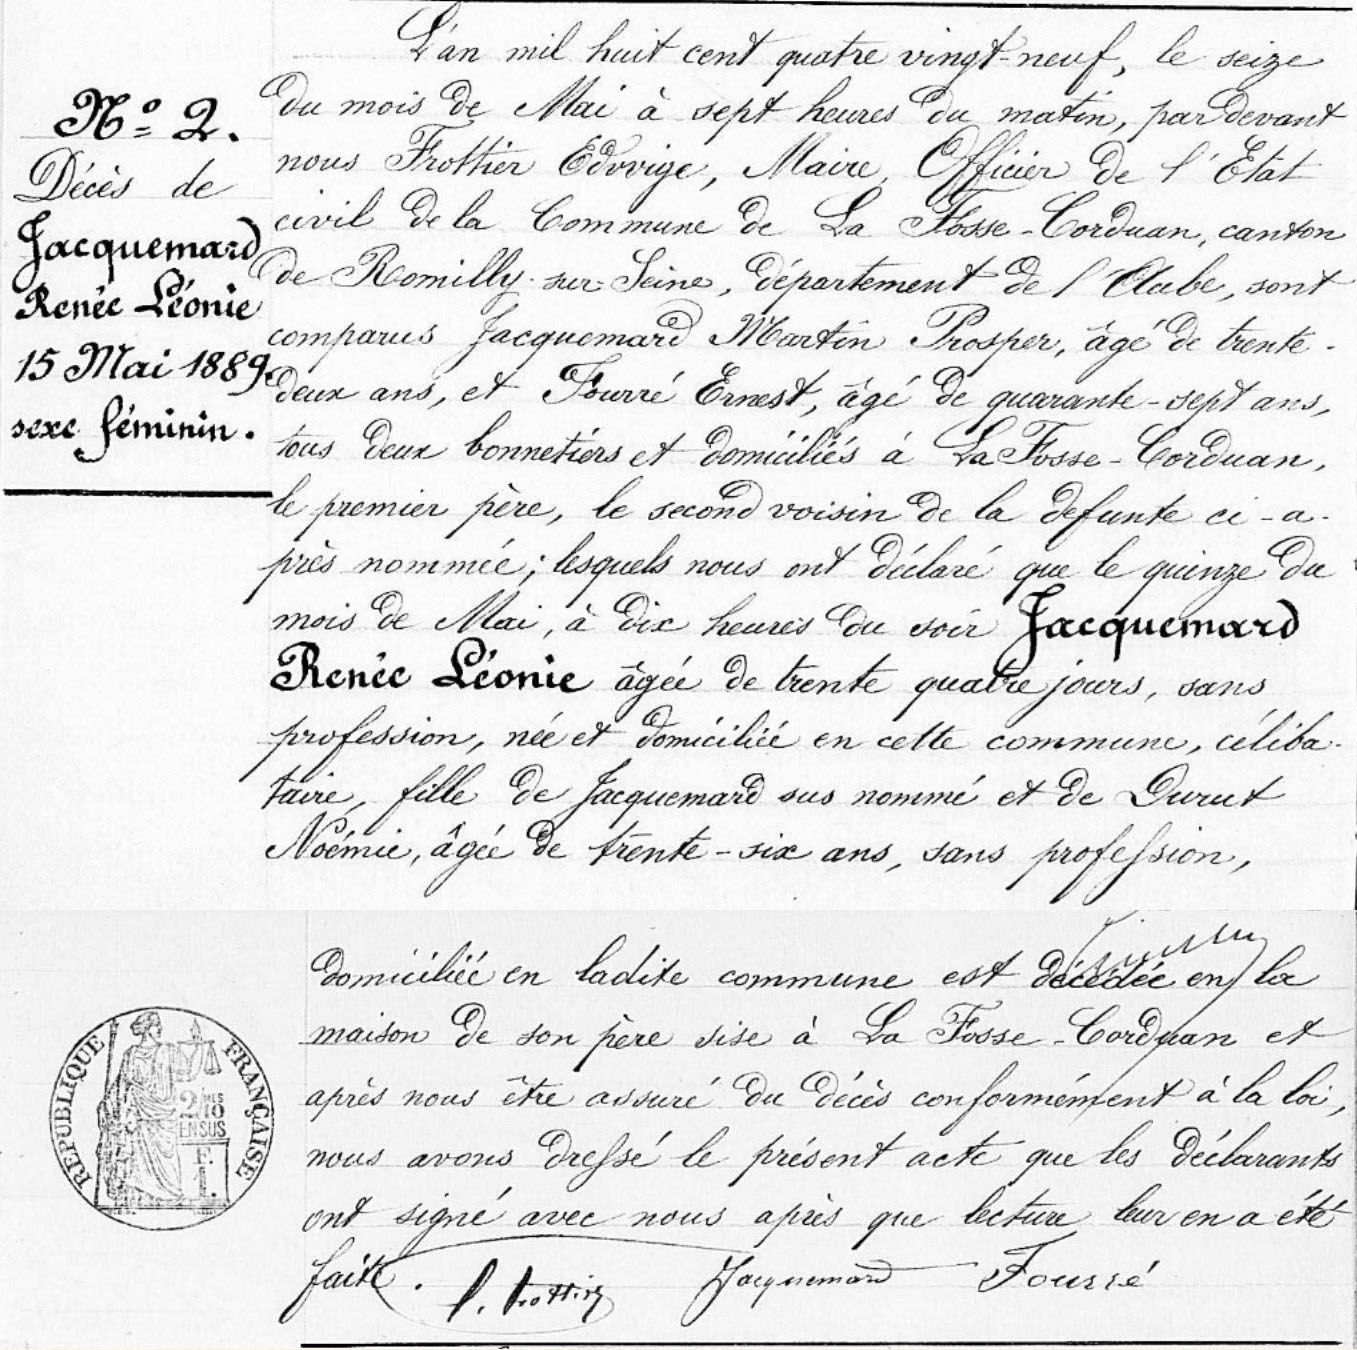 N° 2.
Décès de
Jacquemard
Renée Léonie
15 Mai 1889.
sexe féminin.
L'an mil huit cent quatre vingt-neuf, le seize
du mois de Mai à sept heures du matin, par devant
nous Frottier Edvvige, Maire, Officier de l'Etat
civil de la Commune de La Fosse-Corduan, canton
de Romilly-sur-Seine, département de l'Aube, sont
comparus Jacquemard Martin Prosper, âgé de trente-
deux ans, et Fourré Ernest, âgé de quarante-sept ans,
tous deux bonnetiers et domiciliés à La Fosse-Corduan,
le premier père, le second voisin de la défunte ci-a-
près nommée; lesquels nous ont déclaré que le quinze du
mois de Mai, à dix heures du soir Jacquemard
Renée Léonie âgée de trente quatre jours, sans
profession, née et domiciliée en cette commune, céliba-
taire, fille de Jacquemard sus nommé et de Durut
Noémie, âgée de trente-six ans, sans profession,
domiciliée en ladite commune est décédée en la
maison de son père sise à La Fosse-Corduan et
après nous être assuré du décès conformément à la loi,
nous avons dressé le présent acte que les déclarants
ont signé avec nous après que lecture leur en a été
faite.
Frottier Jacquemard Fourré
RÉPUBLIQUE FRANÇAISE
2/10
EN SUS
F.
1.